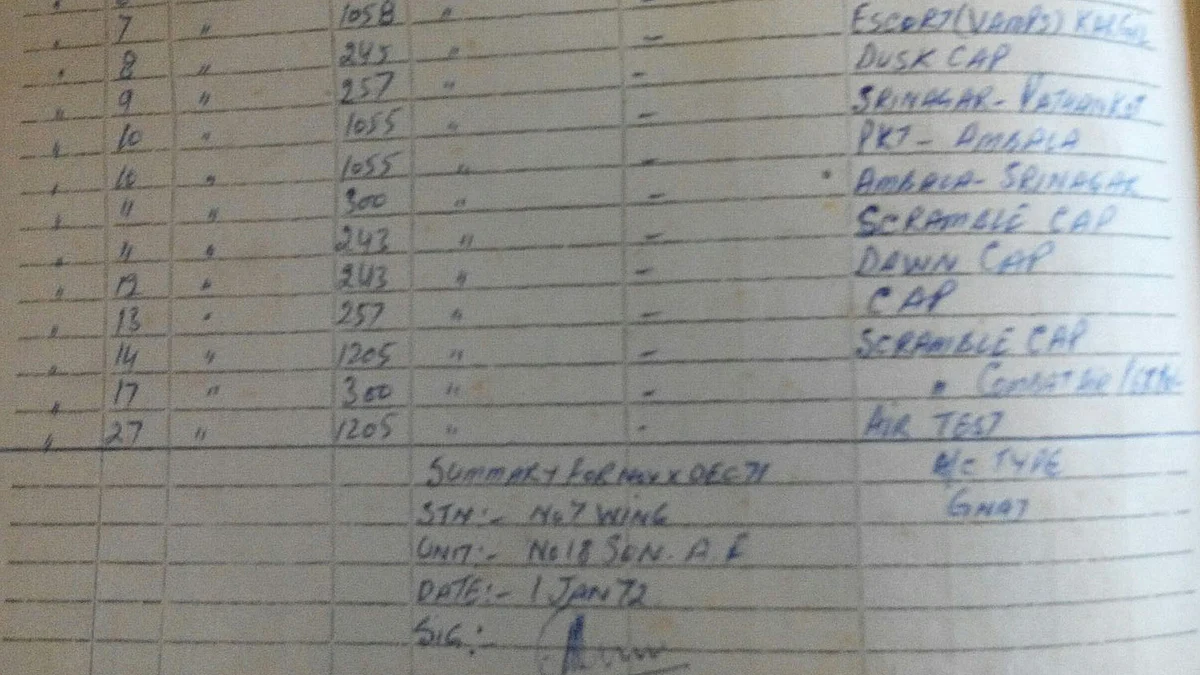 " 7 " 1058 " - ESCORT (VAMPS)
" 8 " 245 " - DUSK CAP
" 9 " 257 " - SRINAGAR - PATHANKOT
" 10 " 1055 " - PKT - AMBALA
" 10 " 1055 " - AMBALA - SRINAGAR
" " " 300 " - SCRAMBLE CAP
" " " 243 " - DAWN CAP
" 12 " 243 " - CAP
" 13 " 257 " - SCRAMBLE CAP
" 14 " 1205 " - " COMBAT
" 17 " 300 " - AIR TEST
" 27 " 1205 " -
SUMMARY FOR NOV x DEC 71 A/C TYPE
STN:- No 7 WING GNAT
UNIT:- No 18 SQN. A.F
DATE:- 1 JAN 72
SIG:-